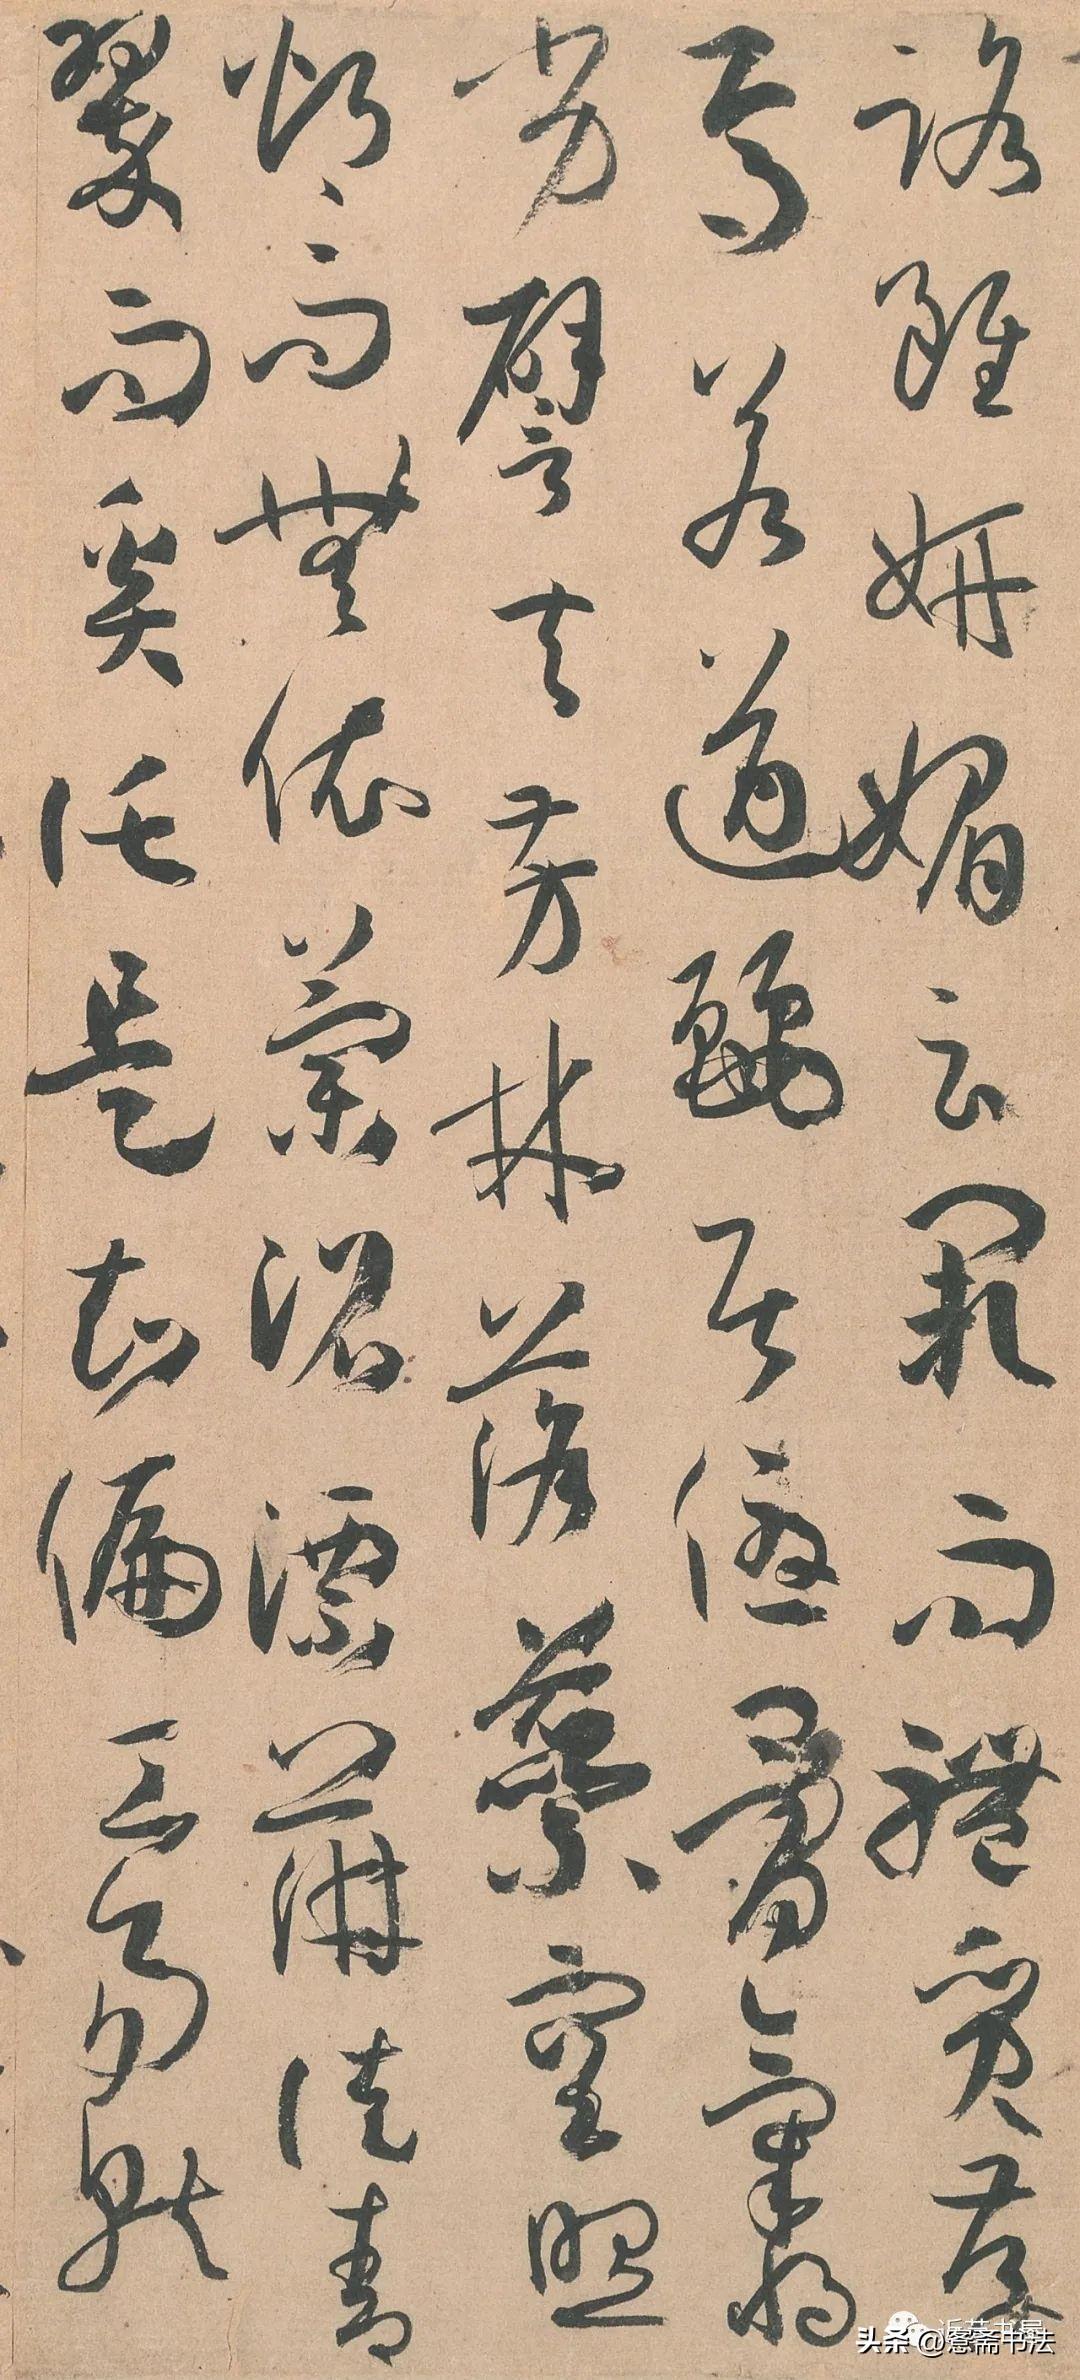 路雖妍媚云闕而體質存
焉若遒麗居優骨氣將
劣譬夫芳林落蘂空照
灼而無依蘭沼漂蓱徒青
翠而奚託是知偏工易就
头条 @愙斋书法